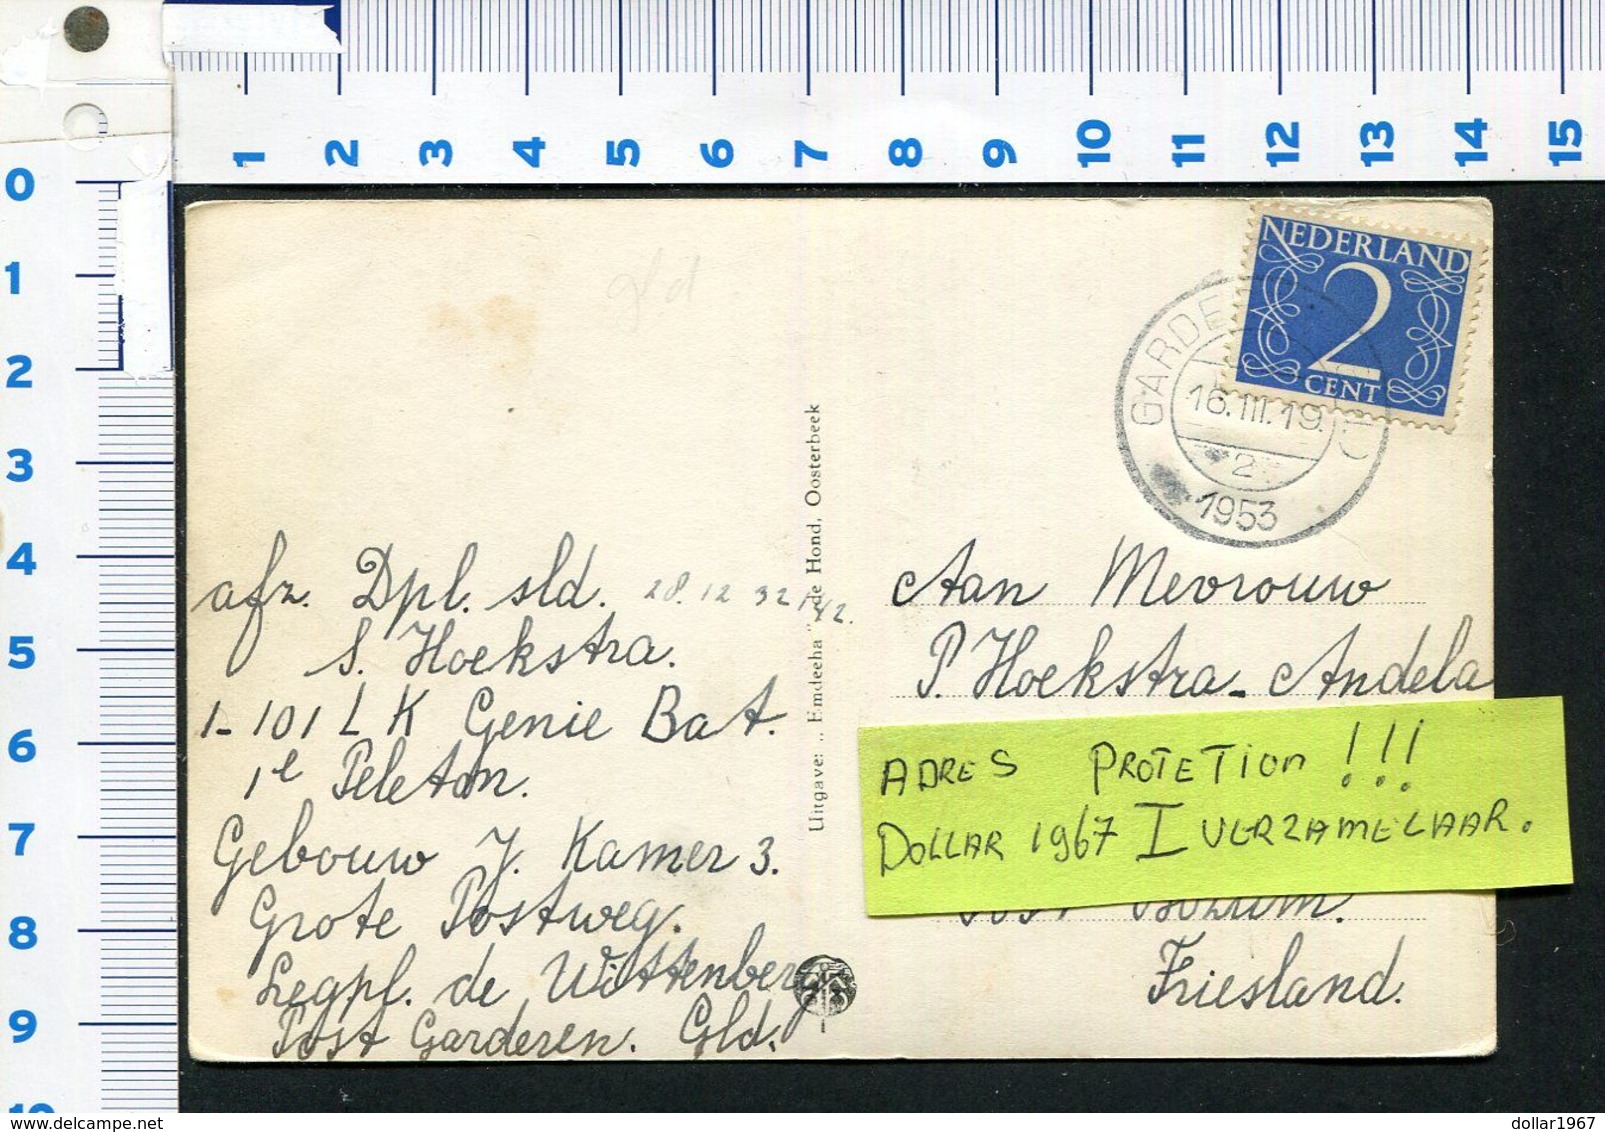 1 2 3 4 5 6 7 8 9 10 11 12 13 14 15
0
1
2
3
4
5
6
7
8
9
10
gld
NEDERLAND
2
CENT
GARDE
16.III.19.
2
1953
afz. Dpl. sld. 28.12 32
S. Hoekstra.
1-101 L K Genie Bat.
1e Peleton.
Gebouw J. Kamer 3.
Grote Postweg.
Legpl. de Wittenberg
Post Garderen. Gld.
Uitgave: „Emdeeha" de Hond, Oosterbeek
Aan Mevrouw
P. Hoekstra-Andela
ADRES PROTETION !!!
DOLLAR 1967 I VERZAMELAAR.
Post Bozum.
Friesland.
delcampe.net
dollar1967